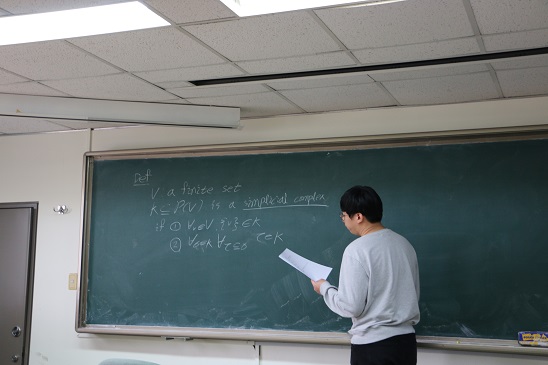 Def
V a finite set
K ⊆ P(V) is a simplicial complex
if ① ∀v∈V, {v}∈K
② ∀σ∈K ∀τ⊆σ τ∈K